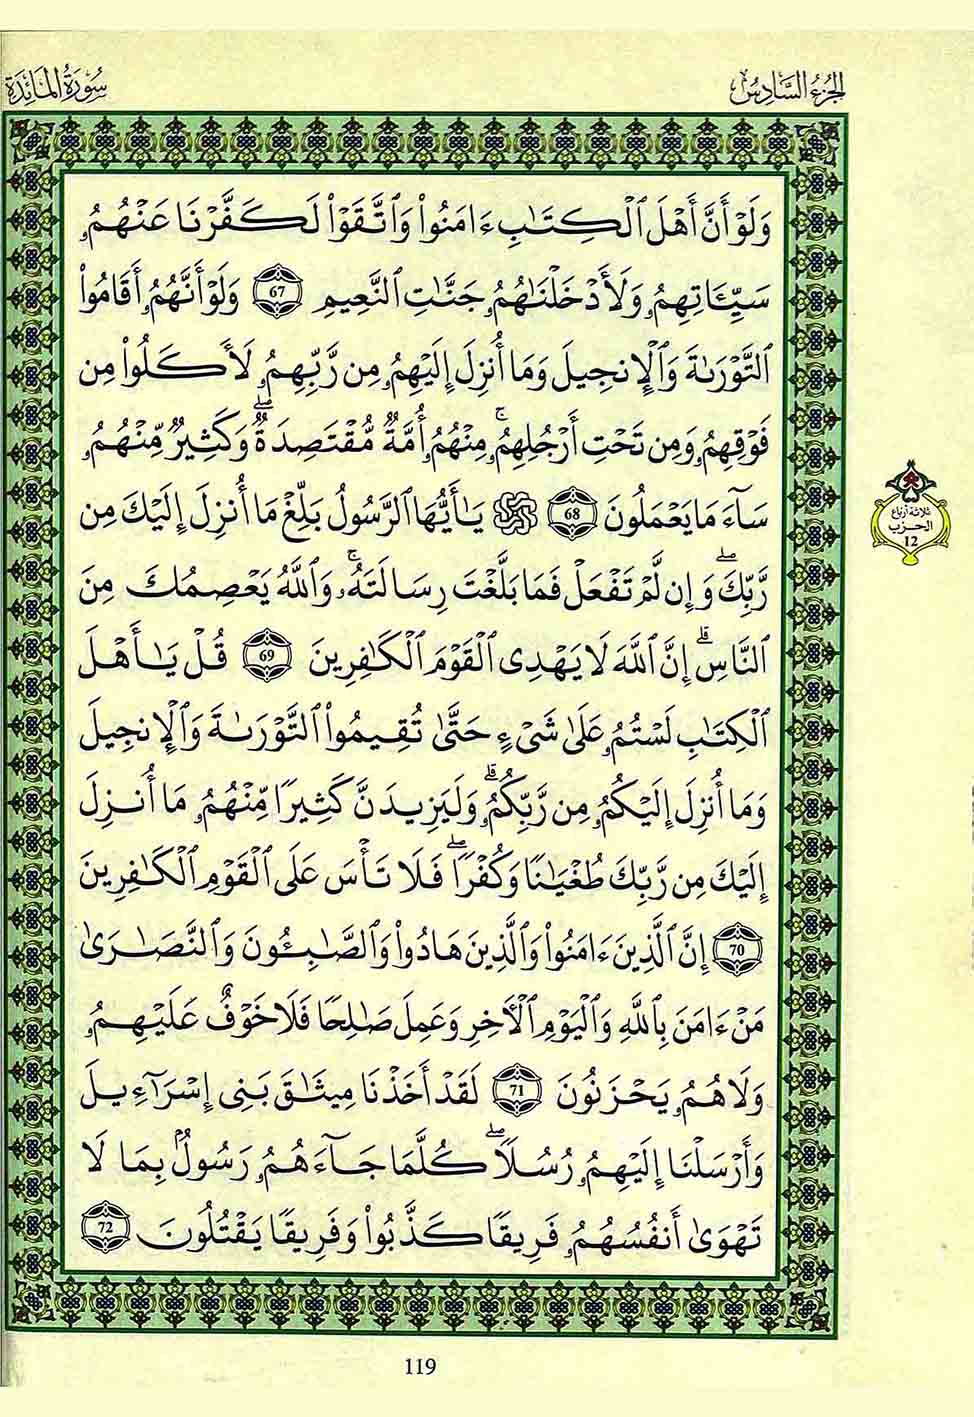 الجزء السادس
سورة المائدة
وَلَوْ أَنَّ أَهْلَ ٱلْكِتَٰبِ ءَامَنُوا۟ وَٱتَّقَوْا۟ لَكَفَّرْنَا عَنْهُمُۥ
سَيِّـَٔاتِهِمُۥ وَلَأَدْخَلْنَٰهُمُۥ جَنَّٰتِ ٱلنَّعِيمِ 67 وَلَوْ أَنَّهُمُۥ أَقَامُوا۟
ٱلتَّوْرَىٰةَ وَٱلْإِنجِيلَ وَمَا أُنزِلَ إِلَيْهِمُۥ مِن رَّبِّهِمُۥ لَأَكَلُوا۟ مِن
فَوْقِهِمُۥ وَمِن تَحْتِ أَرْجُلِهِمُۥۚ مِنْهُمُۥ أُمَّةٌ مُّقْتَصِدَةٌۖ وَكَثِيرٌ مِّنْهُمُۥ
سَآءَ مَا يَعْمَلُونَ 68 ۞ يَٰأَيُّهَا ٱلرَّسُولُ بَلِّغْ مَا أُنزِلَ إِلَيْكَ مِن
رَّبِّكَۖ وَإِن لَّمْ تَفْعَلْ فَمَا بَلَّغْتَ رِسَالَتَهُۥۚ وَٱللَّهُ يَعْصِمُكَ مِنَ
ٱلنَّاسِۗ إِنَّ ٱللَّهَ لَا يَهْدِى ٱلْقَوْمَ ٱلْكَٰفِرِينَ 69 قُلْ يَٰأَهْلَ
ٱلْكِتَٰبِ لَسْتُمُۥ عَلَىٰ شَىْءٍ حَتَّىٰ تُقِيمُوا۟ ٱلتَّوْرَىٰةَ وَٱلْإِنجِيلَ
وَمَا أُنزِلَ إِلَيْكُمُۥ مِن رَّبِّكُمُۥۗ وَلَيَزِيدَنَّ كَثِيرًا مِّنْهُمُۥ مَا أُنزِلَ
إِلَيْكَ مِن رَّبِّكَ طُغْيَٰنًا وَكُفْرًاۖ فَلَا تَأْسَ عَلَى ٱلْقَوْمِ ٱلْكَٰفِرِينَ
70 إِنَّ ٱلَّذِينَ ءَامَنُوا۟ وَٱلَّذِينَ هَادُوا۟ وَٱلصَّٰبِـُٔونَ وَٱلنَّصَٰرَىٰ
مَنْ ءَامَنَ بِٱللَّهِ وَٱلْيَوْمِ ٱلْأَخِرِ وَعَمِلَ صَٰلِحًا فَلَا خَوْفٌ عَلَيْهِمُۥ
وَلَا هُمُۥ يَحْزَنُونَ 71 لَقَدْ أَخَذْنَا مِيثَٰقَ بَنِى إِسْرَآءِيلَ
وَأَرْسَلْنَا إِلَيْهِمُۥ رُسُلًاۖ كُلَّمَا جَآءَهُمُۥ رَسُولٌۢ بِمَا لَا
تَهْوَىٰ أَنفُسُهُمُۥ فَرِيقًا كَذَّبُوا۟ وَفَرِيقًا يَقْتُلُونَ 72
ثلاثة أرباع
الحزب
12
119